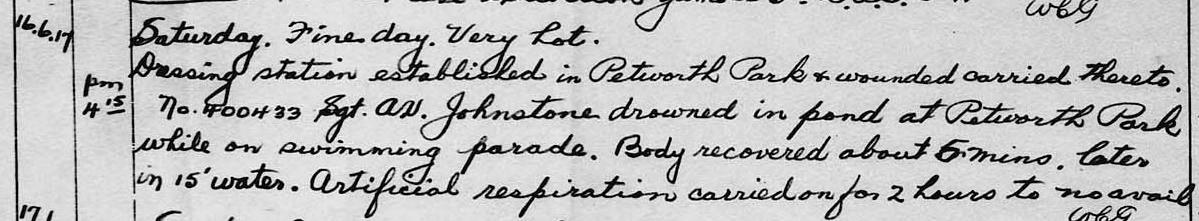 WCG
16.6.17 Saturday. Fine day. Very hot.
Dressing station established in Petworth Park & wounded carried thereto.
pm 4 15 No. 400433 Sgt. A.V. Johnstone drowned in pond at Petworth Park
while on swimming parade. Body recovered about 5 mins. later
in 15' water. Artificial respiration carried on for 2 hours to no avail
WCG